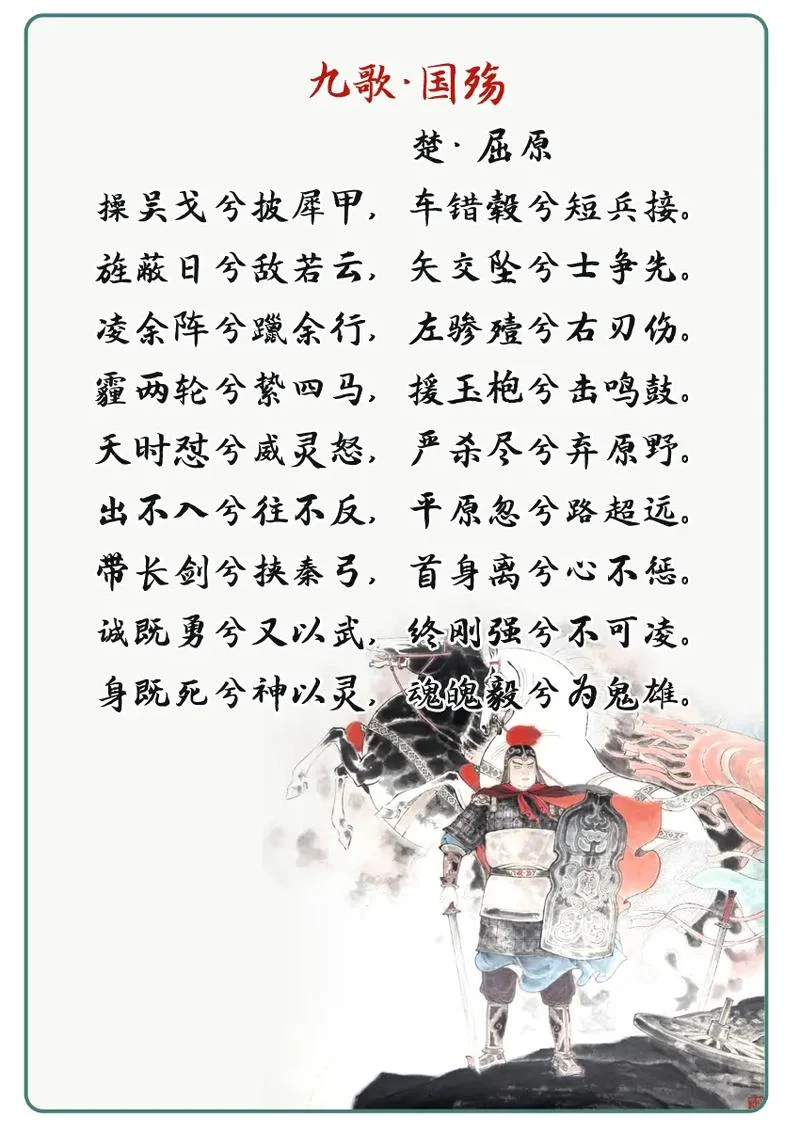 九歌·国殇
楚·屈原
操吴戈兮披犀甲，车错毂兮短兵接。
旌蔽日兮敌若云，矢交坠兮士争先。
凌余阵兮躐余行，左骖殪兮右刃伤。
霾两轮兮絷四马，援玉枹兮击鸣鼓。
天时怼兮威灵怒，严杀尽兮弃原野。
出不入兮往不反，平原忽兮路超远。
带长剑兮挟秦弓，首身离兮心不惩。
诚既勇兮又以武，终刚强兮不可凌。
身既死兮神以灵，魂魄毅兮为鬼雄。